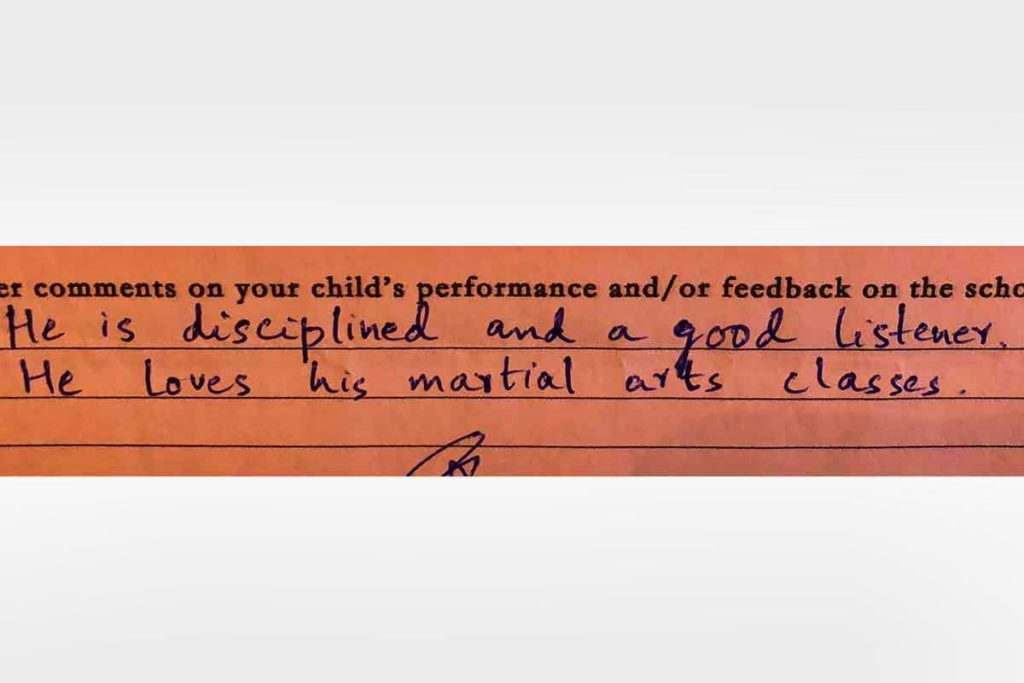 er comments on your child's performance and/or feedback on the scho
He is disciplined and a good listener.
He loves his martial arts classes.